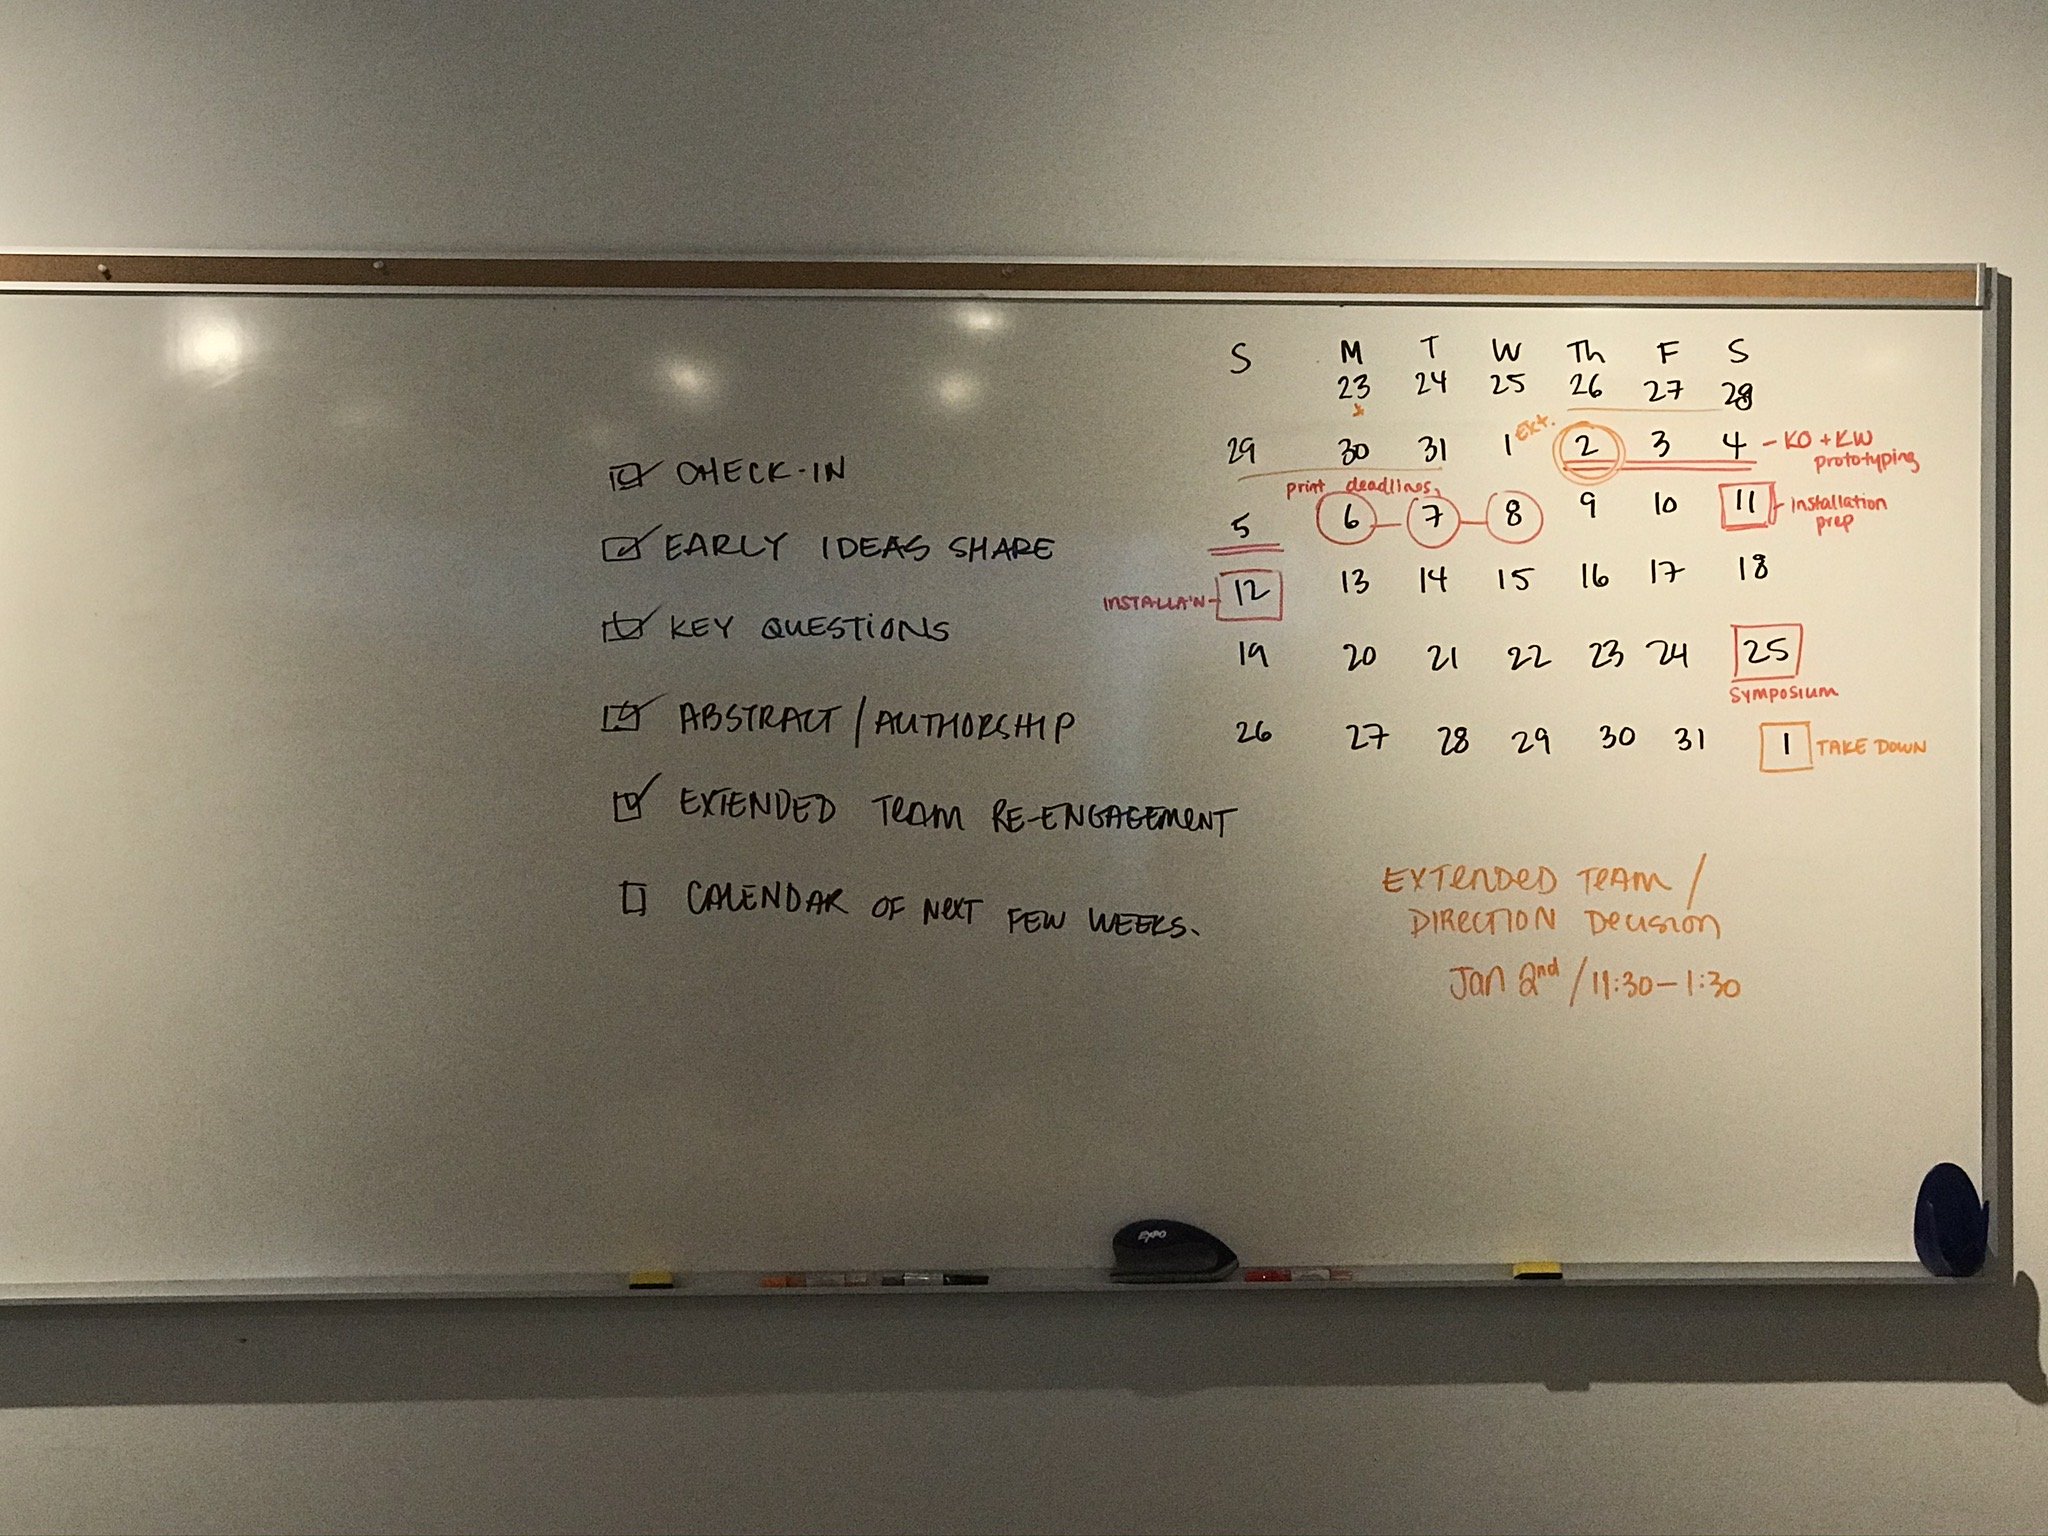 CHECK-IN
EARLY IDEAS SHARE
KEY QUESTIONS
ABSTRACT / AUTHORSHIP
EXTENDED TEAM RE-ENGAGEMENT
CALENDAR OF NEXT FEW WEEKS.
S M T W Th F S
23 24 25 26 27 28
29 30 31 1 Ext. 2 3 4 - KO + KW
prototyping
print deadlines
5 6 7 8 9 10 11 - Installation
prep
INSTALLA'N - 12 13 14 15 16 17 18
19 20 21 22 23 24 25
SYMPOSIUM
26 27 28 29 30 31 1 TAKE DOWN
EXTENDED TEAM /
DIRECTION DECISION
Jan 2nd / 11:30 - 1:30
Expo